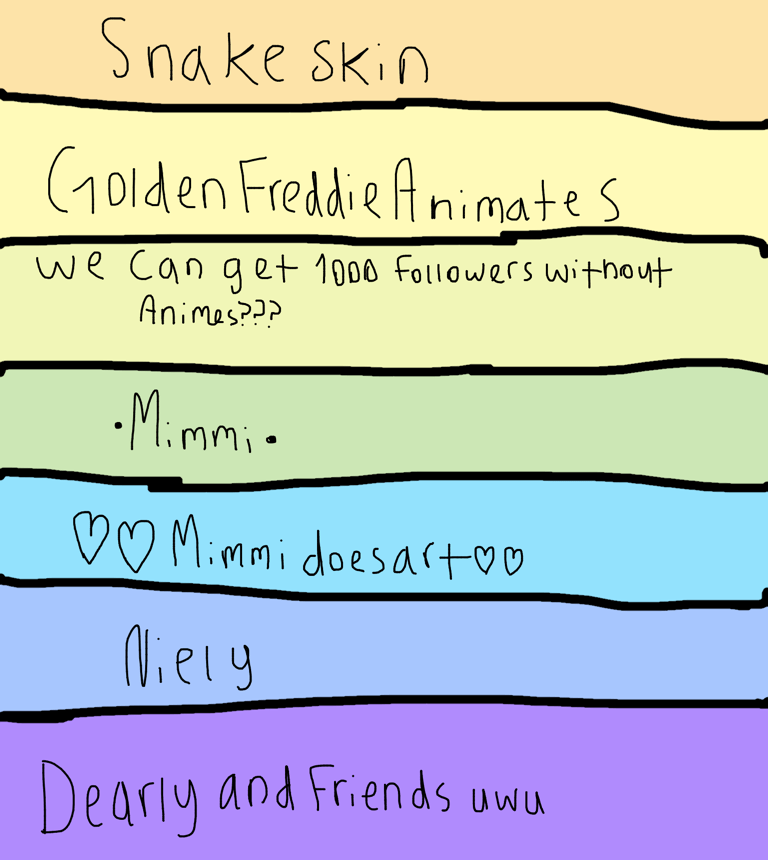 Snake skin
GoldenFreddieAnimates
we can get 1000 followers without
Animes???
•Mimmi•
♡♡Mimmi doesart♡♡
Niely
Dearly and Friends uwu